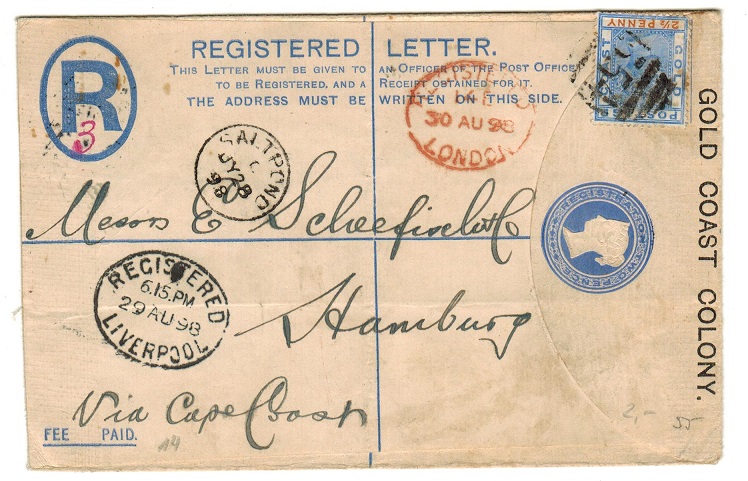 REGISTERED LETTER.
THIS LETTER MUST BE GIVEN TO AN OFFICER OF THE POST OFFICE
TO BE REGISTERED, AND A RECEIPT OBTAINED FOR IT.
THE ADDRESS MUST BE WRITTEN ON THIS SIDE.
R
3
2½ PENNY
GOLD COAST
POSTAGE
GOLD COAST COLONY.
REGISTERED
30 AU 98
LONDON
SALTPOND
C
JY 28
98
Messrs E. &Co
Hamburg
REGISTERED
6.15.PM
29 AU 98
LIVERPOOL
TWO PENCE
Via Cape Coast
FEE PAID.
14
2,-
55